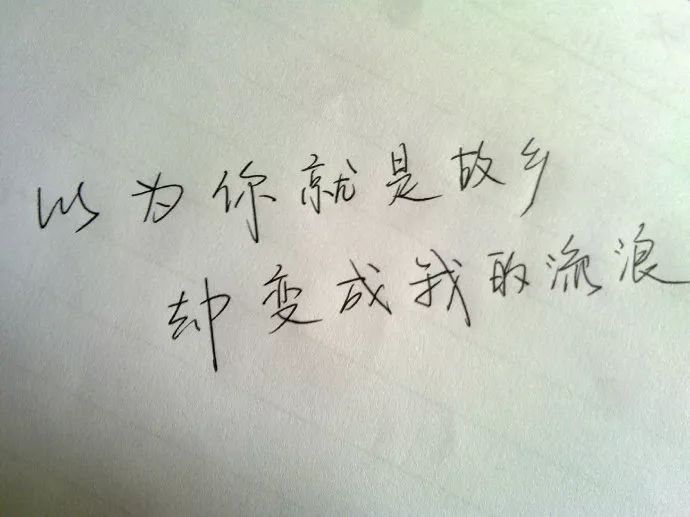 以为你就是故乡
却变成我的流浪